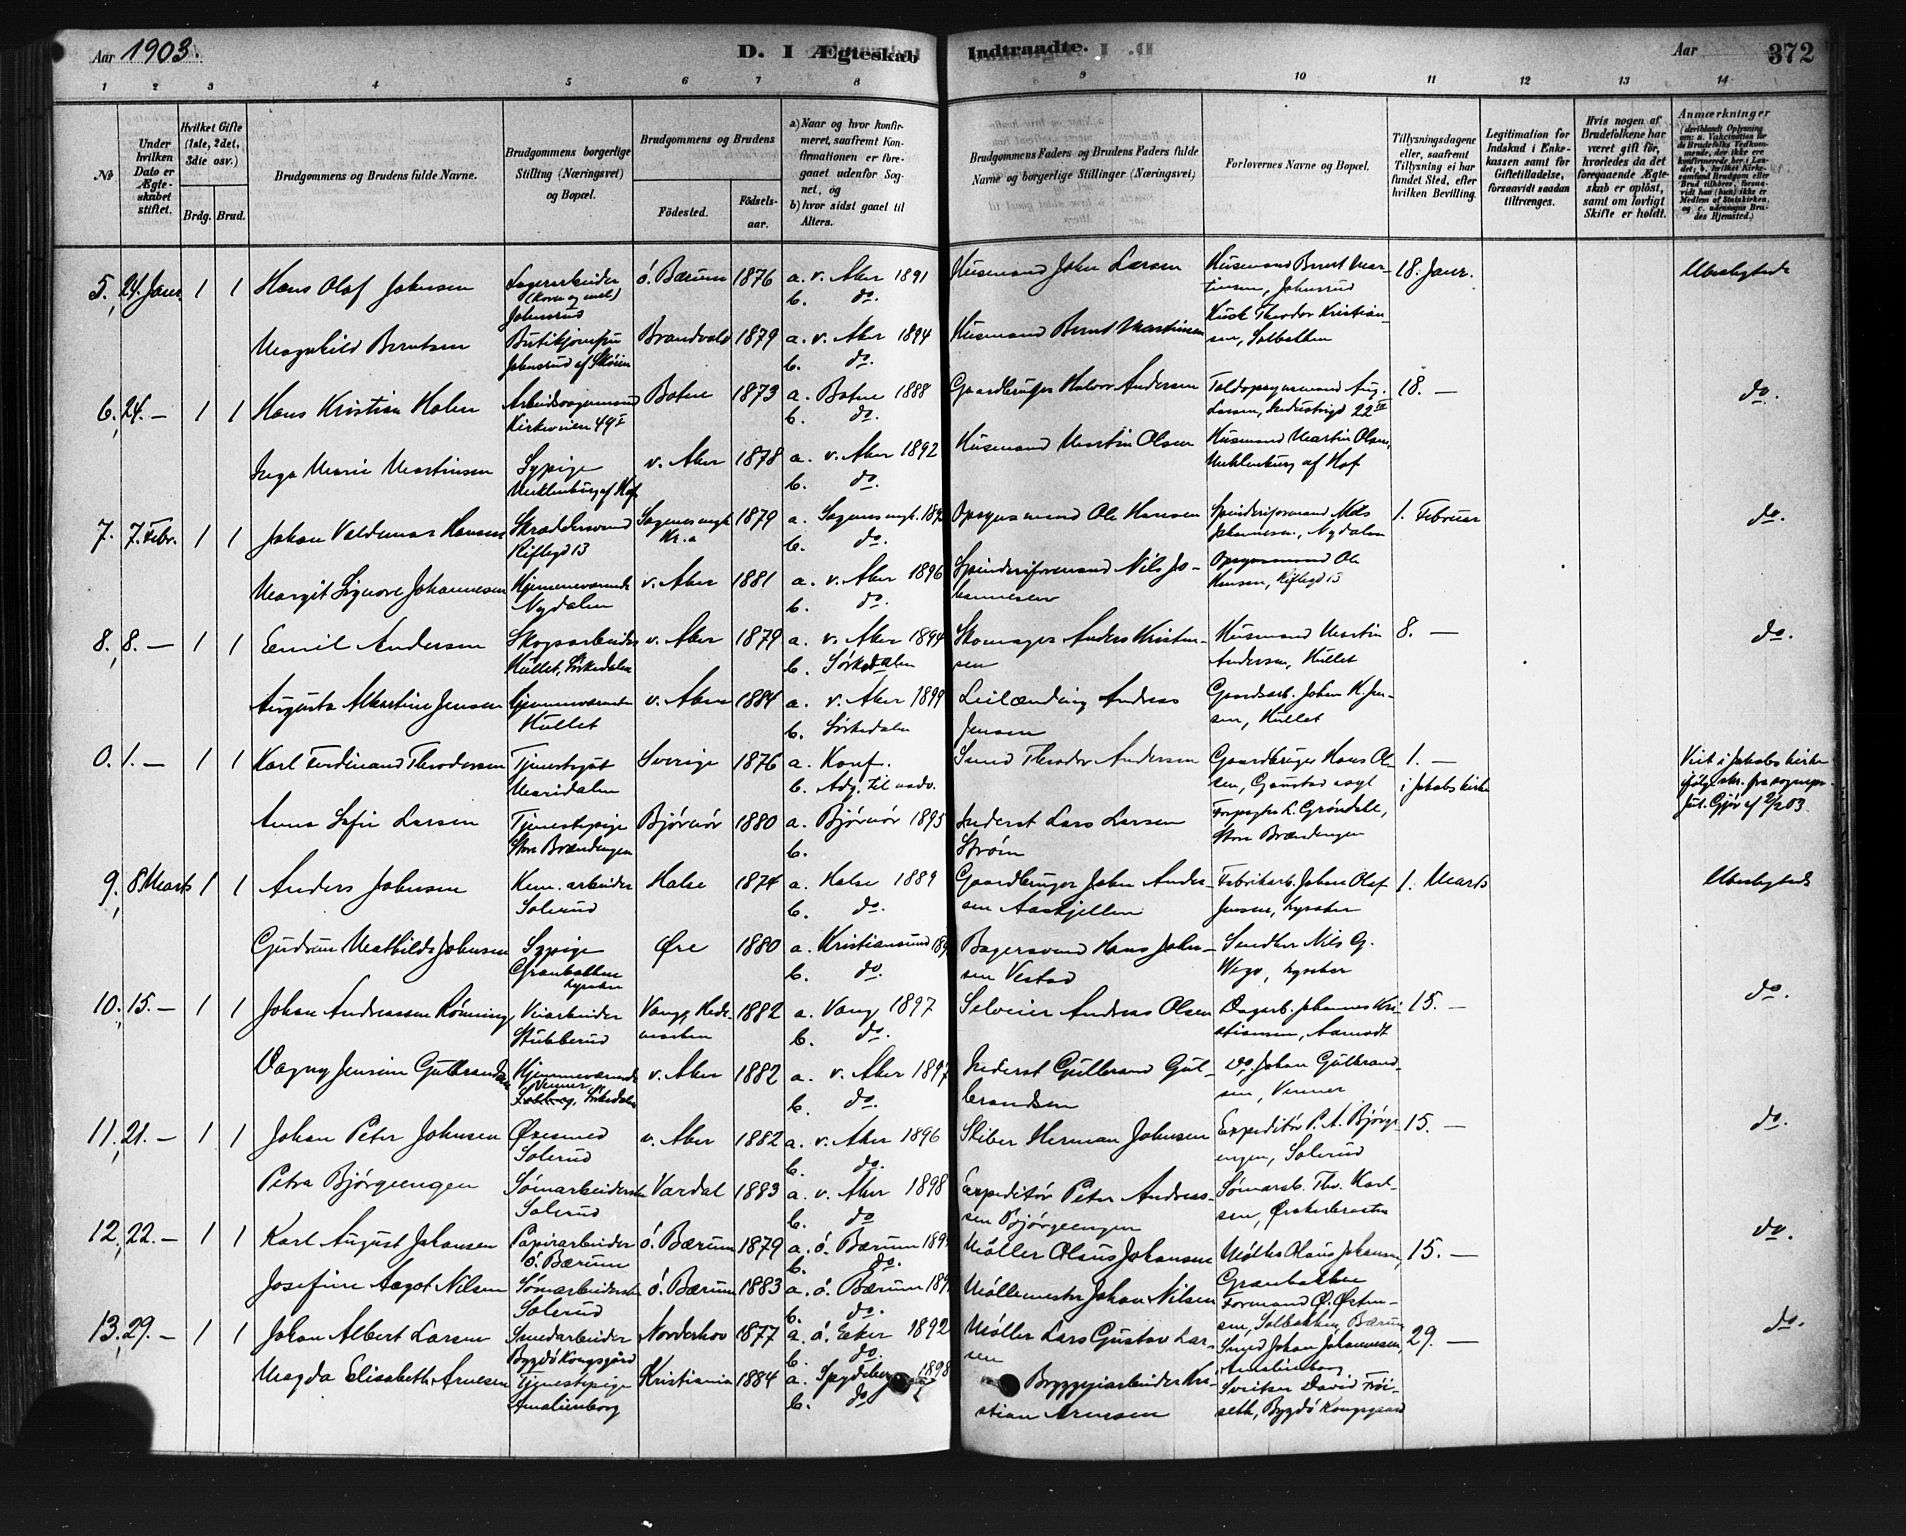 Aar 1903.
D. I Ægteskab
Indtraadte.
Aar
372
1 2 3 4 5 6 7 8 9 10 11 12 13 14
No
Under hvilken Dato er Ægteskabet stiftet.
Hvilket Gifte (1ste, 2det, 3die osv.)
Brdg. Brud.
Brudgommens og Brudens fulde Navne.
Brudgommens borgerlige Stilling (Næringsvei) og Bopæl.
Brudgommens og Brudens
Födested.
Födselsaar.
a) Naar og hvor konfirmeret, saafremt Konfirmationen er foregaaet udenfor Sognet, og
b) hvor sidst gaaet til Alters.
Brudgommens Faders og Brudens Faders fulde Navne og borgerlige Stillinger (Næringsvei)
Forlovernes Navne og Bopæl.
Tillysningsdagene eller, saafremt Tillysning ei har fundet Sted, efter hvilken Bevilling.
Legitimation for Indskud i Enkekassen samt for Giftetilladelse, forsaavidt saadan tiltrænges.
Hvis nogen af Brudefolkene har været gift för, hvorledes da det foregaaende Ægteskab er oplöst, samt om lovligt Skifte er holdt.
Anmærkninger
5. 24. Janr 1 1 Hans Olaf Johnsen Lagerarbeider (korn og mel) Johnsrud ö. Bærum 1876 a. v. Aker 1891 b. do. Husmand John Larsen Husmand Bernt Martinsen, Johnsrud 18. Janr. Ubeslægtede
Magnhild Berntsen Butikjomfru Johnsrud af Skøien Brandvold 1879 a. v. Aker 1894 b. do. Husmand Bernt Martinsen Kusk Theodor Kristiansen, Solbakken
6. 24. — 1 1 Hans Kristian Holm Arbeidsvognmand Kirkeveien 49 I Botne 1873 a. Botne 1888 b. do. Gaardbruger Halvor Andersen Toldopsynsmand Aug. Larsen, Industrigd 22 18. — do.
Inga Marie Martinsen Sypige Meklenburg af Hof v. Aker 1878 a. v. Aker 1892 b. do. Husmand Martin Olsen Husmand Martin Olsen, Meklenburg af Hof
7. 7. Febr. 1 1 Johan Valdemar Hansen Skræddersvend Riflegd 13 Sagenes mgh. Kr.a 1879 a. Sagenes mgh. b. do. Opsynsmand Ole Hansen Spinderiformand Nils Johannesen, Nydalen 1. Februar do.
Margit Signore Johannesen Hjemmeværende Nydalen v. Aker 1881 a. v. Aker 1896 b. do. Spinderiformand Nils Johannesen Opsynsmand Ole Hansen, Riflegd 13
8. 8. — 1 1 Emil Andersen Skogsarbeider Hullet, Sörkedalen v. Aker 1879 a. v. Aker 1894 b. Sörkedalen Skomager Anders Kristensen Husmand Martin Andersen, Hullet 8. — do.
Augusta Albertine Jensen Hjemmeværende Hullet v. Aker 1884 a. v. Aker 1899 b. Sörkedalen Leilænding Andreas Jensen Gaardsarb. Johan K. Jensen, Hullet
0. 1. — 1 1 Karl Ferdinand Theodorsen Tjenestegut Maridalen Sverige 1876 a. Konf. b. Adg. til nadv. Smed Theodor Andersen Gaardbruger Hans Olsen, Gaustad asyl 1. — i Jakobs kirke Viet i Jakobs kirke ifølge skr. fra sognepr.
Anna Sofie Larsen Tjenestepige Store Brændengen Bjørnør 1880 a. Bjørnør 1895 b. Inderst Lars Larsen Strøm Forpagter L. Gröndahl, Store Brændengen
9. 8. Marts 1 1 Anders Johnsen Kem. arbeider Solerud Halse 1874 a. Halse 1889 b. do. Gaardbruger John Andersen Aaskjellen Fabrikarb. Johan Olaf Jensen, Lysaker 1. Marts Ubeslægtede
Gudrun Mathilde Johnsen Sypige Granbakken Lysaker Øre 1880 a. Kristiansund b. do. Bagersvend Hans Johnsen Vestad Snedker Nils G. Wego, Lysaker
10. 15. — 1 1 Johan Andreassen Rönning Veiarbeider Stubberud Vang, Hedemarken 1882 a. Vang 1897 b. do. Selveier Andreas Olsen Dagarb. Johannes Kristiansen, Aamodt 15. — do.
Dagny Jensine Gulbrandsen Hjemmeværende Venner, Sörkedalen v. Aker 1882 a. v. Aker 1897 b. do. Inderst Gulbrand Gulbrandsen Do Johan Gulbrandsen, Venner
11. 21. — 1 1 Johan Peter Johnsen Øxesmed Solerud v. Aker 1882 a. v. Aker 1896 b. do. Sliber Herman Johnsen Expeditör P. A. Bjørgeengen, Solerud 15. — do.
Petra Bjørgeengen Sömarbeiderske Solerud Vardal 1883 a. v. Aker 1898 b. do Expeditör Peter Andreassen Bjørgeengen Sömarb. Th. Karlsen,
12. 22. — 1 1 Karl August Johansen Papirarbeider ö. Bærum ö. Bærum 1879 a. ö. Bærum b. do. Møller Olaus Johansen Møller Olaus Johansen, Granbakken 15. — do.
Josefine Aagot Nilsen Sömarbeiderske Solerud ö. Bærum 1883 a. ö. Bærum b. do. Møllemester Johan Nilsen Formand O. Østensen, Solbakken, Bærum
13. 29. — 1 1 Johan Albert Larsen Smedarbeider Bygdö Kongsgård Norderhov 1877 a. ö. Eker 1892 b. do. Møller Lars Gustav Larsen Smed Johan Johannessen, Amalienborg 29. — do.
Magda Elisabeth Arnesen Tjenestepige Amalienborg Kristiania 1884 a. Spydeberg 1898 b. do Bryggeriarbeider Kristian Arnesen Sveitser David Fröiseth, Bygdö Kongsgaard